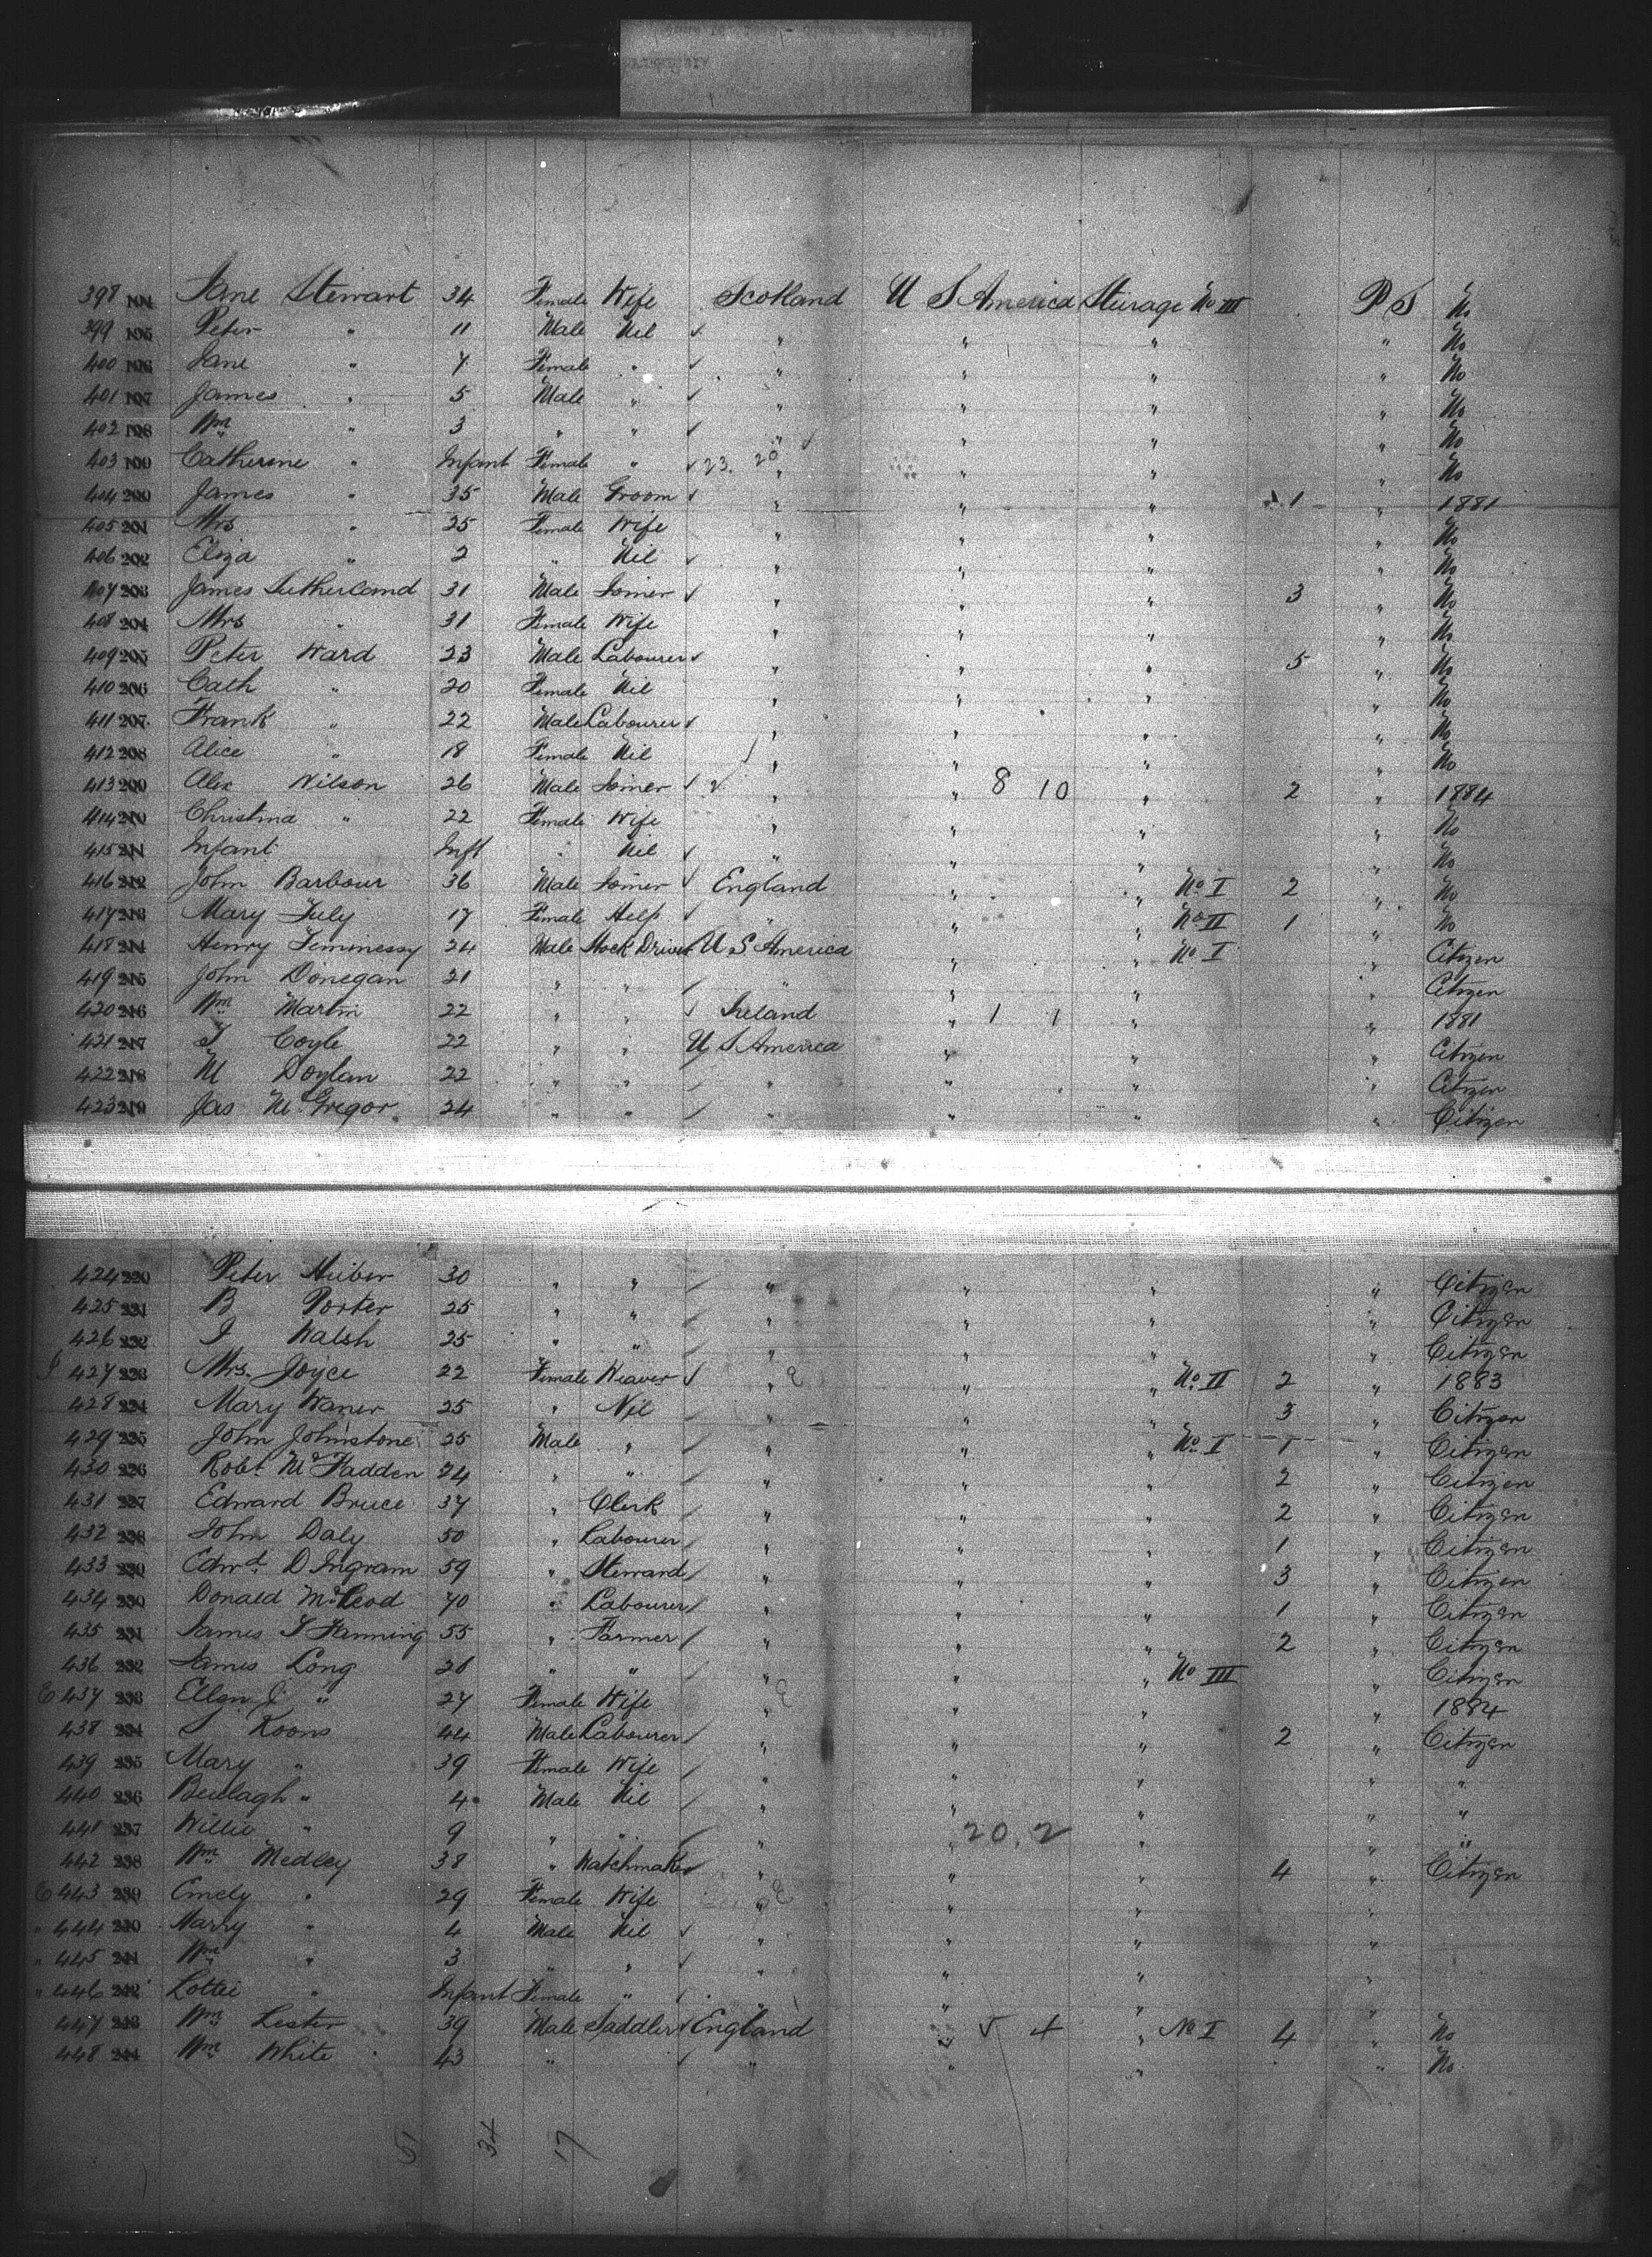 398 194 Jane Stewart 34 Female Wife Scotland U S America Sturage No III P S No
399 195 Peter " 11 Male Nil " " " " No
400 196 Jane " 7 Female " " " " " No
401 197 James " 5 Male " " " " " No
402 198 Wm " 3 " " " " " " No
403 199 Catherine " Infant Female " 23. 20 " " " " No
404 200 James " 35 Male Groom " " " 1 " 1881
405 201 Mrs " 25 Female Wife " " " " No
406 202 Eliza " 2 " Nil " " " " No
407 203 James Sutherland 31 Male Joiner " " " 3 " No
408 204 Mrs " 31 Female Wife " " " " No
409 205 Peter Ward 23 Male Labourer " " " 5 " No
410 206 Cath " 20 Female Nil " " " " No
411 207 Frank " 22 Male Labourer " " " " No
412 208 Alice " 18 Female Nil " " " " No
413 209 Alex Wilson 26 Male Joiner " " 8 10 " 2 " 1884
414 210 Christina " 22 Female Wife " " " " No
415 211 Infant Inft " Nil " " " " No
416 212 John Barbour 36 Male Joiner England " " No I 2 " No
417 213 Mary July 17 Female Help " " " No II 1 " No
418 214 Henry 24 Male Stock Driver U S America " " No I " Citizen
419 215 John Donegan 21 " " " " " " Citizen
420 216 Wm Martin 22 " " Ireland " 1 1 " " 1881
421 217 T Coyle 22 " " U S America " " " Citizen
422 218 M Doylan 22 " " " " " " Citizen
423 219 Jas McGregor 24 " " " " " " Citizen
424 220 Peter Huiber 30 " " " " " " Citizen
425 221 B Porter 25 " " " " " " Citizen
426 222 J Walsh 25 " " " " " " Citizen
427 223 Mrs. Joyce 22 Female Weaver " " " No II 2 " 1883
428 224 Mary Waner 25 " Nil " " " 3 " Citizen
429 225 John Johnstone 25 Male " " " " No I 1 " Citizen
430 226 Robt McFadden 24 " " " " " 2 " Citizen
431 227 Edward Bruce 37 " Clerk " " " 2 " Citizen
432 228 John Daly 50 " Labourer " " " 1 " Citizen
433 229 Edwd D Ingram 59 " Steward " " " 3 " Citizen
434 230 Donald McLeod 70 " Labourer " " " 1 " Citizen
435 231 James T Fanning 55 " Farmer " " " 2 " Citizen
436 232 James Long 26 " " " " " No III " Citizen
E 437 233 Ellen J " 27 Female Wife " " " " 1884
438 234 S Koons 44 Male Labourer " " " 2 " Citizen
439 235 Mary " 39 Female Wife " " " " "
440 236 Beulagh " 4 Male Nil " " " " "
441 237 Willie " 9 " " " 20. 2 " " "
442 238 Wm Medley 38 " Watchmaker " " " 4 " Citizen
E 443 239 Emely " 29 Female Wife " " " "
" 444 240 Harry " 4 Male Nil " " " "
" 445 241 Wm " 3 " " " " " "
" 446 242 Lottei " Infant Female " " " " "
447 243 Wm Lester 39 Male Saddler England " 5 4 " No I 4 " No
448 244 Wm White 43 " " " " " No
51 34 17